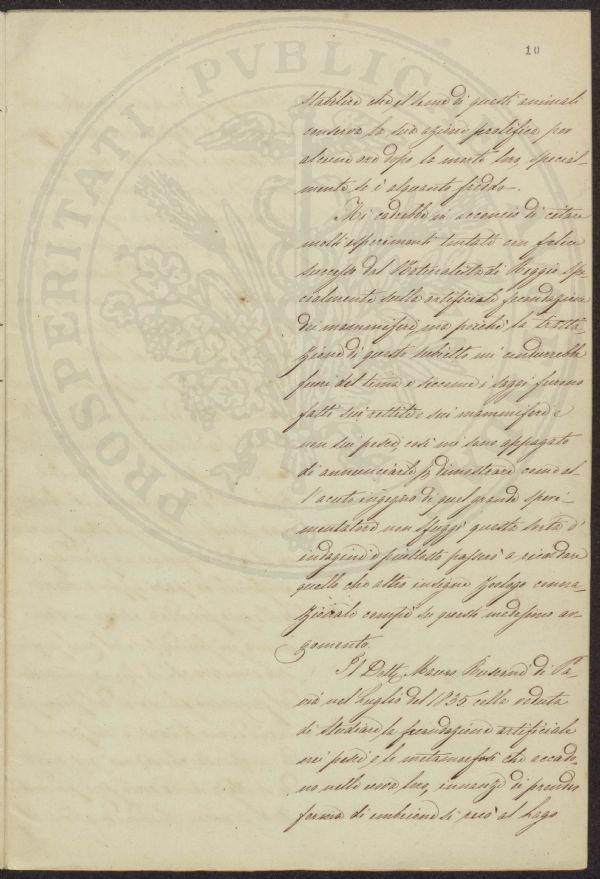 10
PROSPERITATI PVBLICAE
stabilire che il seme di questi animali
conserva la sua azione prolifica per
alcune ore dopo la morte loro special-
mente se è alquanto freddo.
Mi cadrebbe in acconcio di citare
molti esperimenti tentati con felice
successo dal Naturalista di Reggio spe-
cialmente sulla artificiale fecondazione
dei mammiferi, ma poichè la tratta-
zione di questo subietto mi condurrebbe
fuori del tema e siccome i saggi furono
fatti sui rettili e sui mammiferi e
non sui pesci, così mi sono appagato
di annunciarli p dimostrare come al-
l'acuto ingegno di quel grande speri-
mentatore non sfuggì questa sorta d'
indagini e piuttosto passerò a ricordare
quello che altro insigne Zoologo conna-
zionale compiè su questo medesimo ar-
gomento.
Il Dott. Mauro Rusconi di Pa-
via nel Luglio del 1835 colla veduta
di studiare la fecondazione artificiale
nei pesci e le metamorfosi che accado-
no nelle uova loro, innanzi di prender
forma di embrione si recò al Lago